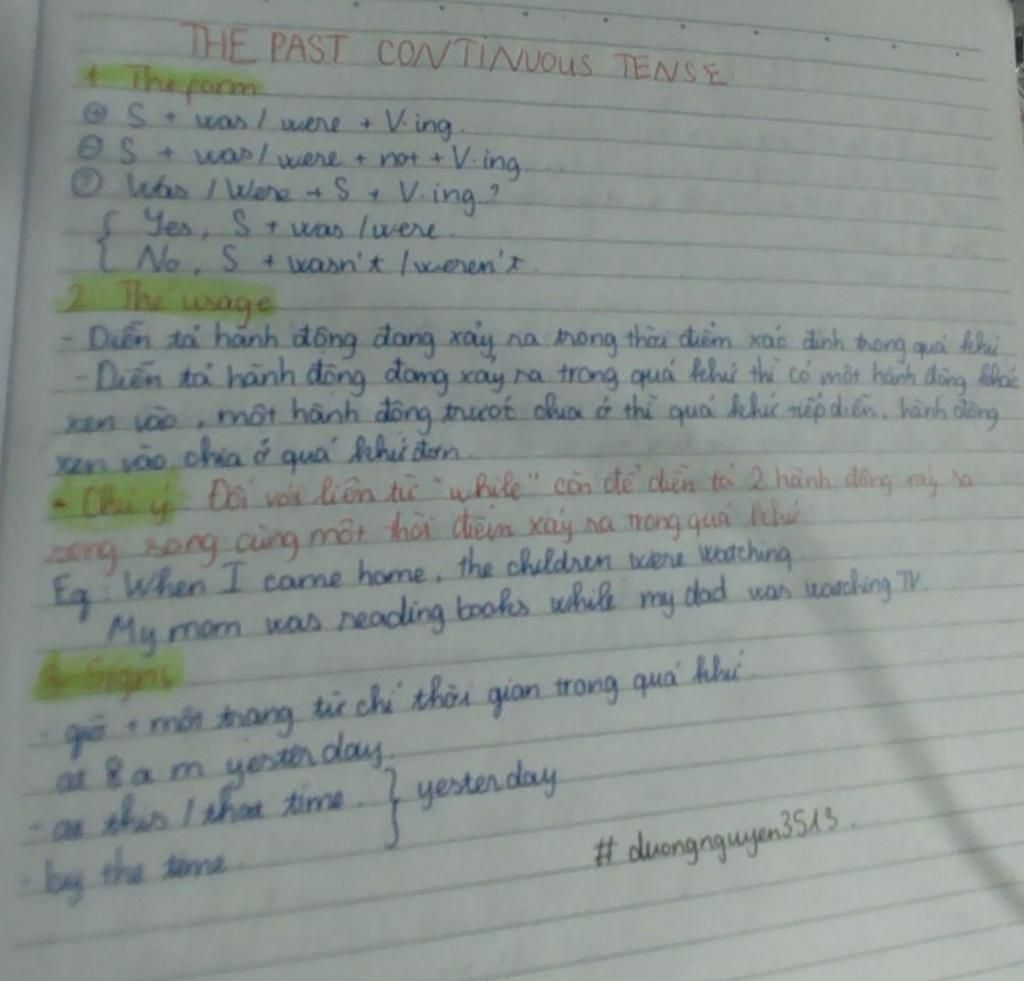 THE PAST CONTINUOUS TENSE
1 The form
⊕ S + was / were + V.ing
⊖ S + was / were + not + V.ing
? Was / Were + S + V.ing?
{ Yes, S + was / were.
{ No, S + wasn't / weren't.
2 The usage
- Diễn tả hành động đang xảy ra trong thời điểm xác định trong quá khứ
- Diễn tả hành động đang xảy ra trong quá khứ thì có một hành động khác
xen vào, một hành động trước chia ở thì quá khứ tiếp diễn, hành động
xen vào chia ở quá khứ đơn.
- Chú ý: Đối với liên từ "while" còn để diễn tả 2 hành động xảy ra
song song cùng một thời điểm xảy ra trong quá khứ
Eg: When I came home, the children were watching
My mom was reading books while my dad was watching TV.
3 Signs
- giờ + một trạng từ chỉ thời gian trong quá khứ
at 8 a m yesterday.
- at this / that time. } yesterday
- by the time.
# duongnguyen3513.